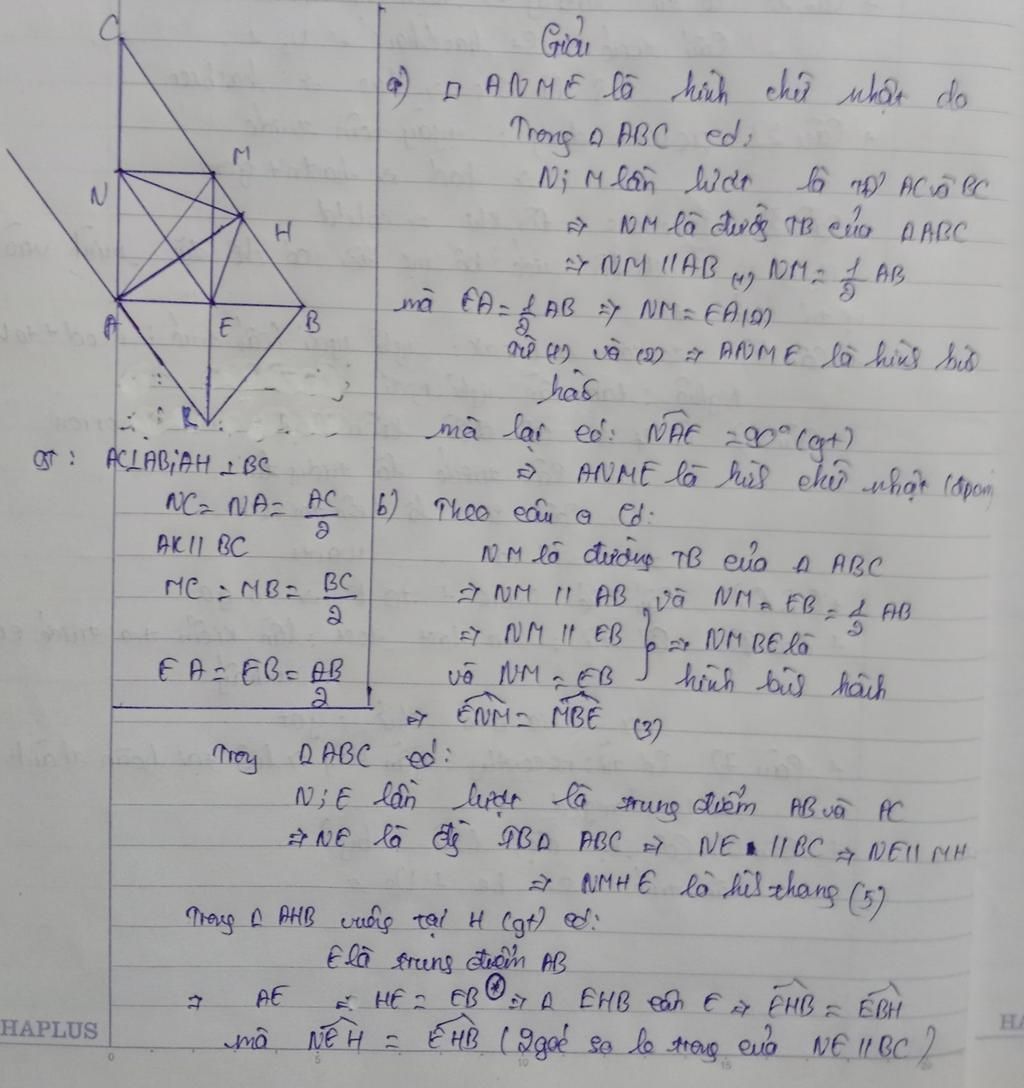 C
N
M
H
A
E
B
K
GT : AC⊥AB; AH ⊥ BC
NC = NA = AC/2
AK // BC
MC = MB = BC/2
EA = EB = AB/2
Giải
a) □ ANME là hình chữ nhật do
Trong Δ ABC có:
N; M lần lượt là TĐ AC và BC
⇒ NM là đường TB của ΔABC
⇒ NM // AB (1), NM = 1/2 AB
mà EA = 1/2 AB ⇒ NM = EA (2)
từ (1) và (2) ⇒ ANME là hình bình
hành
mà lại có: NAE = 90° (gt)
⇒ ANME là hình chữ nhật (đpcm)
b) Theo câu a có:
NM là đường TB của Δ ABC
⇒ NM // AB và NM = EB = 1/2 AB
⇒ NM // EB } ⇒ NMBE là
và NM = EB hình bình hành
⇒ ENM = MBE (3)
Trong ΔABC có:
N; E lần lượt là trung điểm AB và AC
⇒ NE là đg TB Δ ABC ⇒ NE // BC ⇒ NE // MH
⇒ NMHE là hình thang (5)
Trong Δ AHB vuông tại H (gt) có:
E là trung điểm AB
⇒ AE = HE = EB (*) ⇒ Δ EHB cân E ⇒ EHB = EBH
mà NEH = EHB (2 góc so le trong của NE // BC)
HAPLUS
HA
0 5 10 15 20